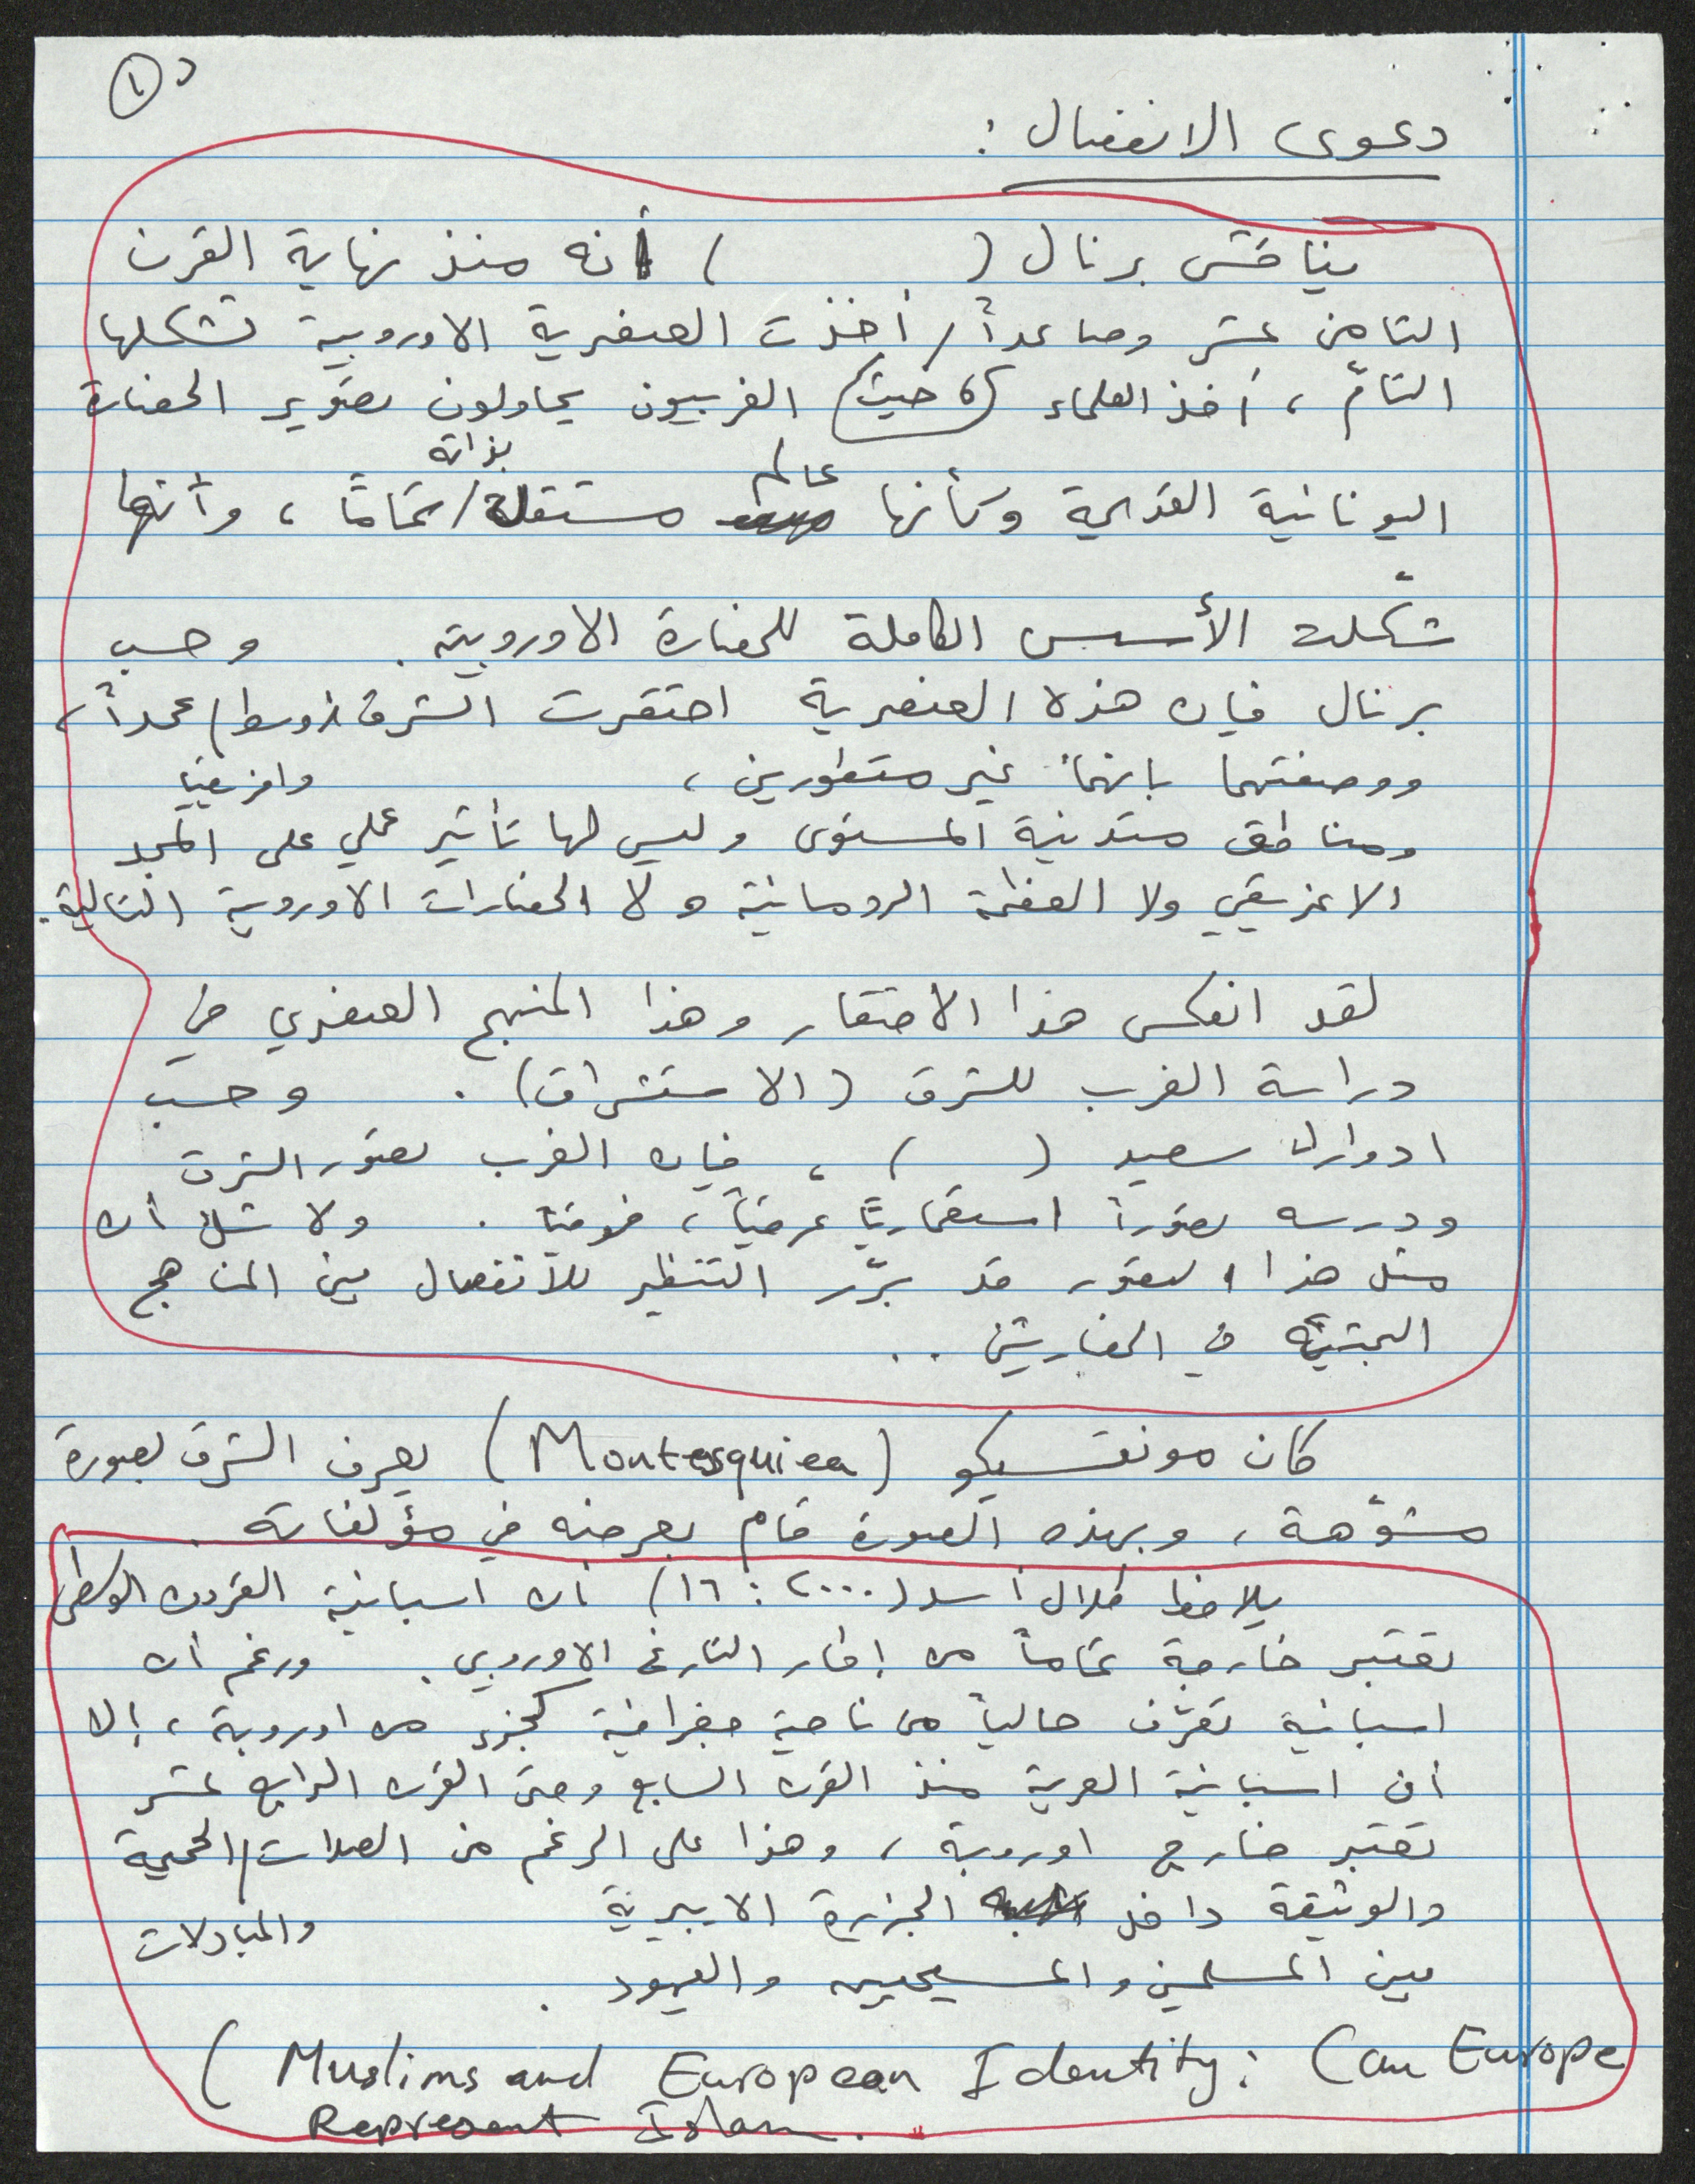 د ①
دعوى الانفصال :
يناقش برنال (          ) أنه منذ نهاية القرن
الثامن عشر وصاعداً / أخذت العنصرية الاوروبية تشكلها
التامّ ، أخذ العلماء (، حيث) الغربيون يحاولون تصوير الحضارة
عالم بذاته
اليونانية القديمة وكأنها مستقلة / تمامًا ، وأنها
شكّلت الأسس الكاملة للحضارة الاوروبية . وحسب
برنال فإن هذه العنصرية احتقرت الشرق اوسط / عمداً ،
ووصفتهما بانهما غير متطورين ، وافريقيا
ومناطق متدنية المستوى وليس لها تأثير عملي على المجد
الاغريقي ولا العظمة الرومانية ولا الحضارات الاوروبية التالية .
لقد انعكس هذا الاحتقار وهذا المنهج العنصري في
دراسة الغرب للشرق (الاستشراق) . وحسب
ادوارد سعيد (    ) ، فإن الغرب تصوّر الشرق
ودرسه تصوّراً استعماريًّا عرقيًّا ، فوقيًّا . ولا شك أن
مثل هذا التصوّر قد برّر التنظير للأنفصال بين المناهج
البحثيّة في الحضارتين ..
كان مونتسيكو (Montesquiea) يعرف الشرق بصورة
مشوّهة ، وبهذه الصورة قام بعرضه في مؤلفاته .
يلاحظ طلال أسد (٢٠٠٠ : ١٦) أن اسبانية القرون الوسطى
تعتبر خارجة تماماً من إطار التاريخ الاوروبي . ورغم أن
اسبانية تعرّف حالياً من ناحية جغرافية كجزء من اوروبة ، إلا
أن اسبانية العربية منذ القرن السابع وحتى القرن الرابع عشر
تعتبر خارج اوروبة ، وهذا على الرغم من الصلات / الحميمة
والوثيقة داخل الجزيرة الايبيرية
والمبادلات
بين المسلمين والمسيحيين واليهود .
( Muslims and European Identity: Can Europe
Represent Islam .